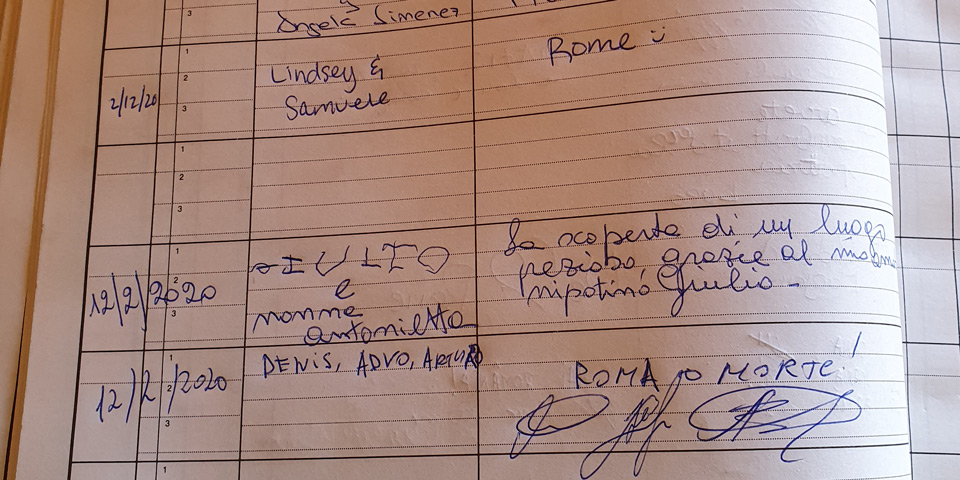 Angela Simenez
2/12/20
Lindsey &
Samuele
Rome
12/2/2020
e
nonna
Antonietta
La scoperta di un luogo
prezioso, grazie al mio
nipotino Giulio -
12/2/2020
DENIS, ADVO, ARTURO
ROMA O MORTE!